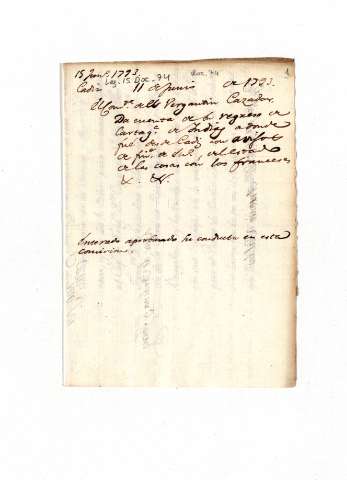 15 Jun.º 1793
Leg. 15 Doc. 74
Doc. 74
1
Cadiz 11 de Junio de 1793.
El Com.te del Vergantin Cazador
Da cuenta de su regreso de
Cartag.a de Indias a donde
fué desde Cadiz con avisos
de
de las cosas con los franceses
&. &.
Enterado aprobando su conducta en esta
comision.